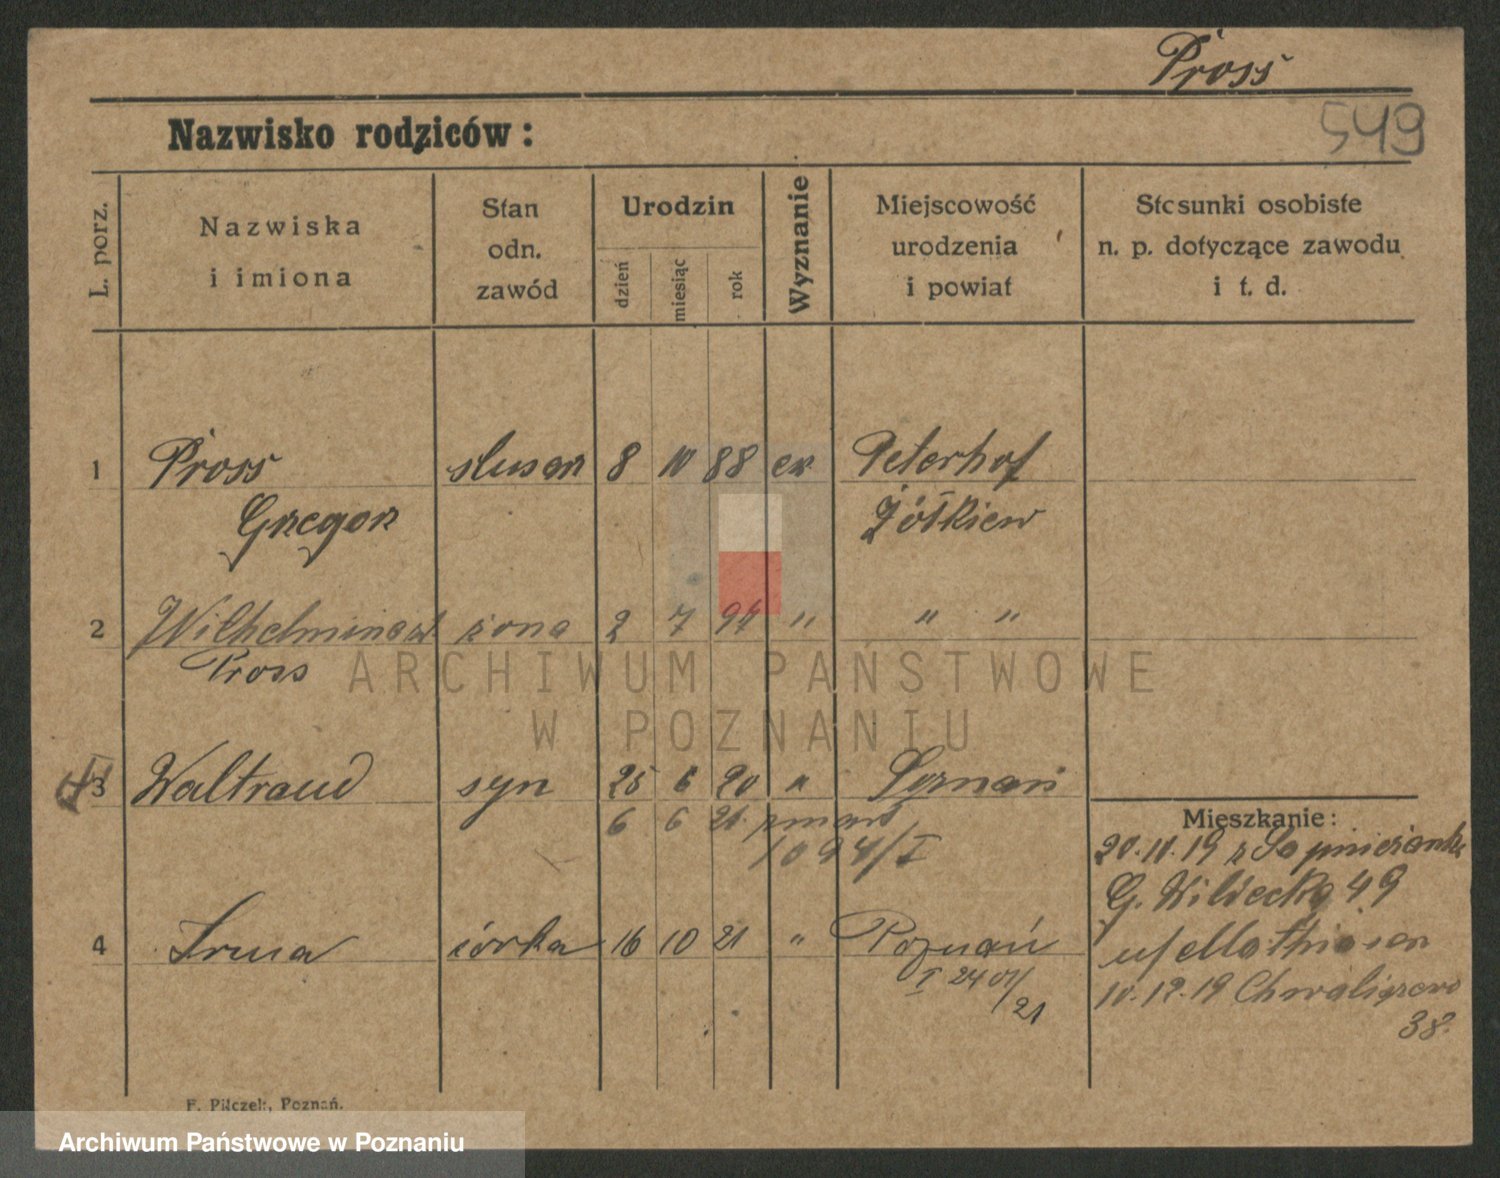 Pross
549
Nazwisko rodziców:
L. porz.
Nazwiska
i imiona
Stan
odn.
zawód
Urodzin
dzień
miesiąc
rok
Wyznanie
Miejscowość
urodzenia
i powiat
Stosunki osobiste
n. p. dotyczące zawodu
i t. d.
1 Pross ślusarz 8 10 88 ew Peterhof
Gregor Żółkiew
2 Wilhelmina żona 2 7 94 " " "
Pross
3 Waltraud syn 25 6 20 " Poznań
6 6 21 zmarł
1094/I
Mieszkanie:
20.10.19 z
G. Wildecka 49
4 Irma córka 16 10 21 " Poznań
I 2401/
21
10.12.19 Chwaliszewo
38.
F. Pilczek, Poznań.
ARCHIWUM PAŃSTWOWE
W POZNANIU
Archiwum Państwowe w Poznaniu